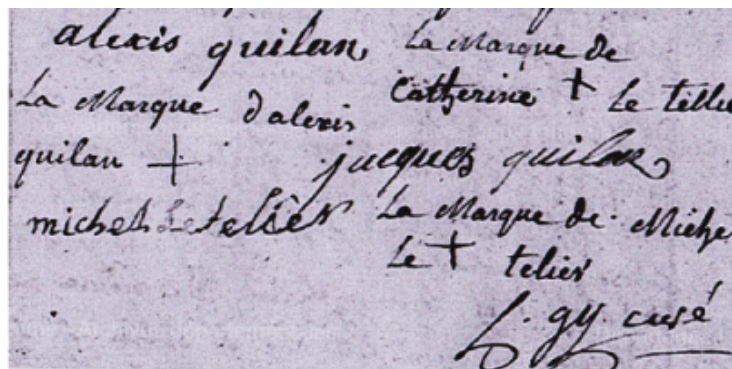 alexis quilan, La Marque de
Catherine + Le tellie
La Marque d'alexis
quilan + jacques quilan
michel Le telier La Marque de Miche
Le + telier
gy curé